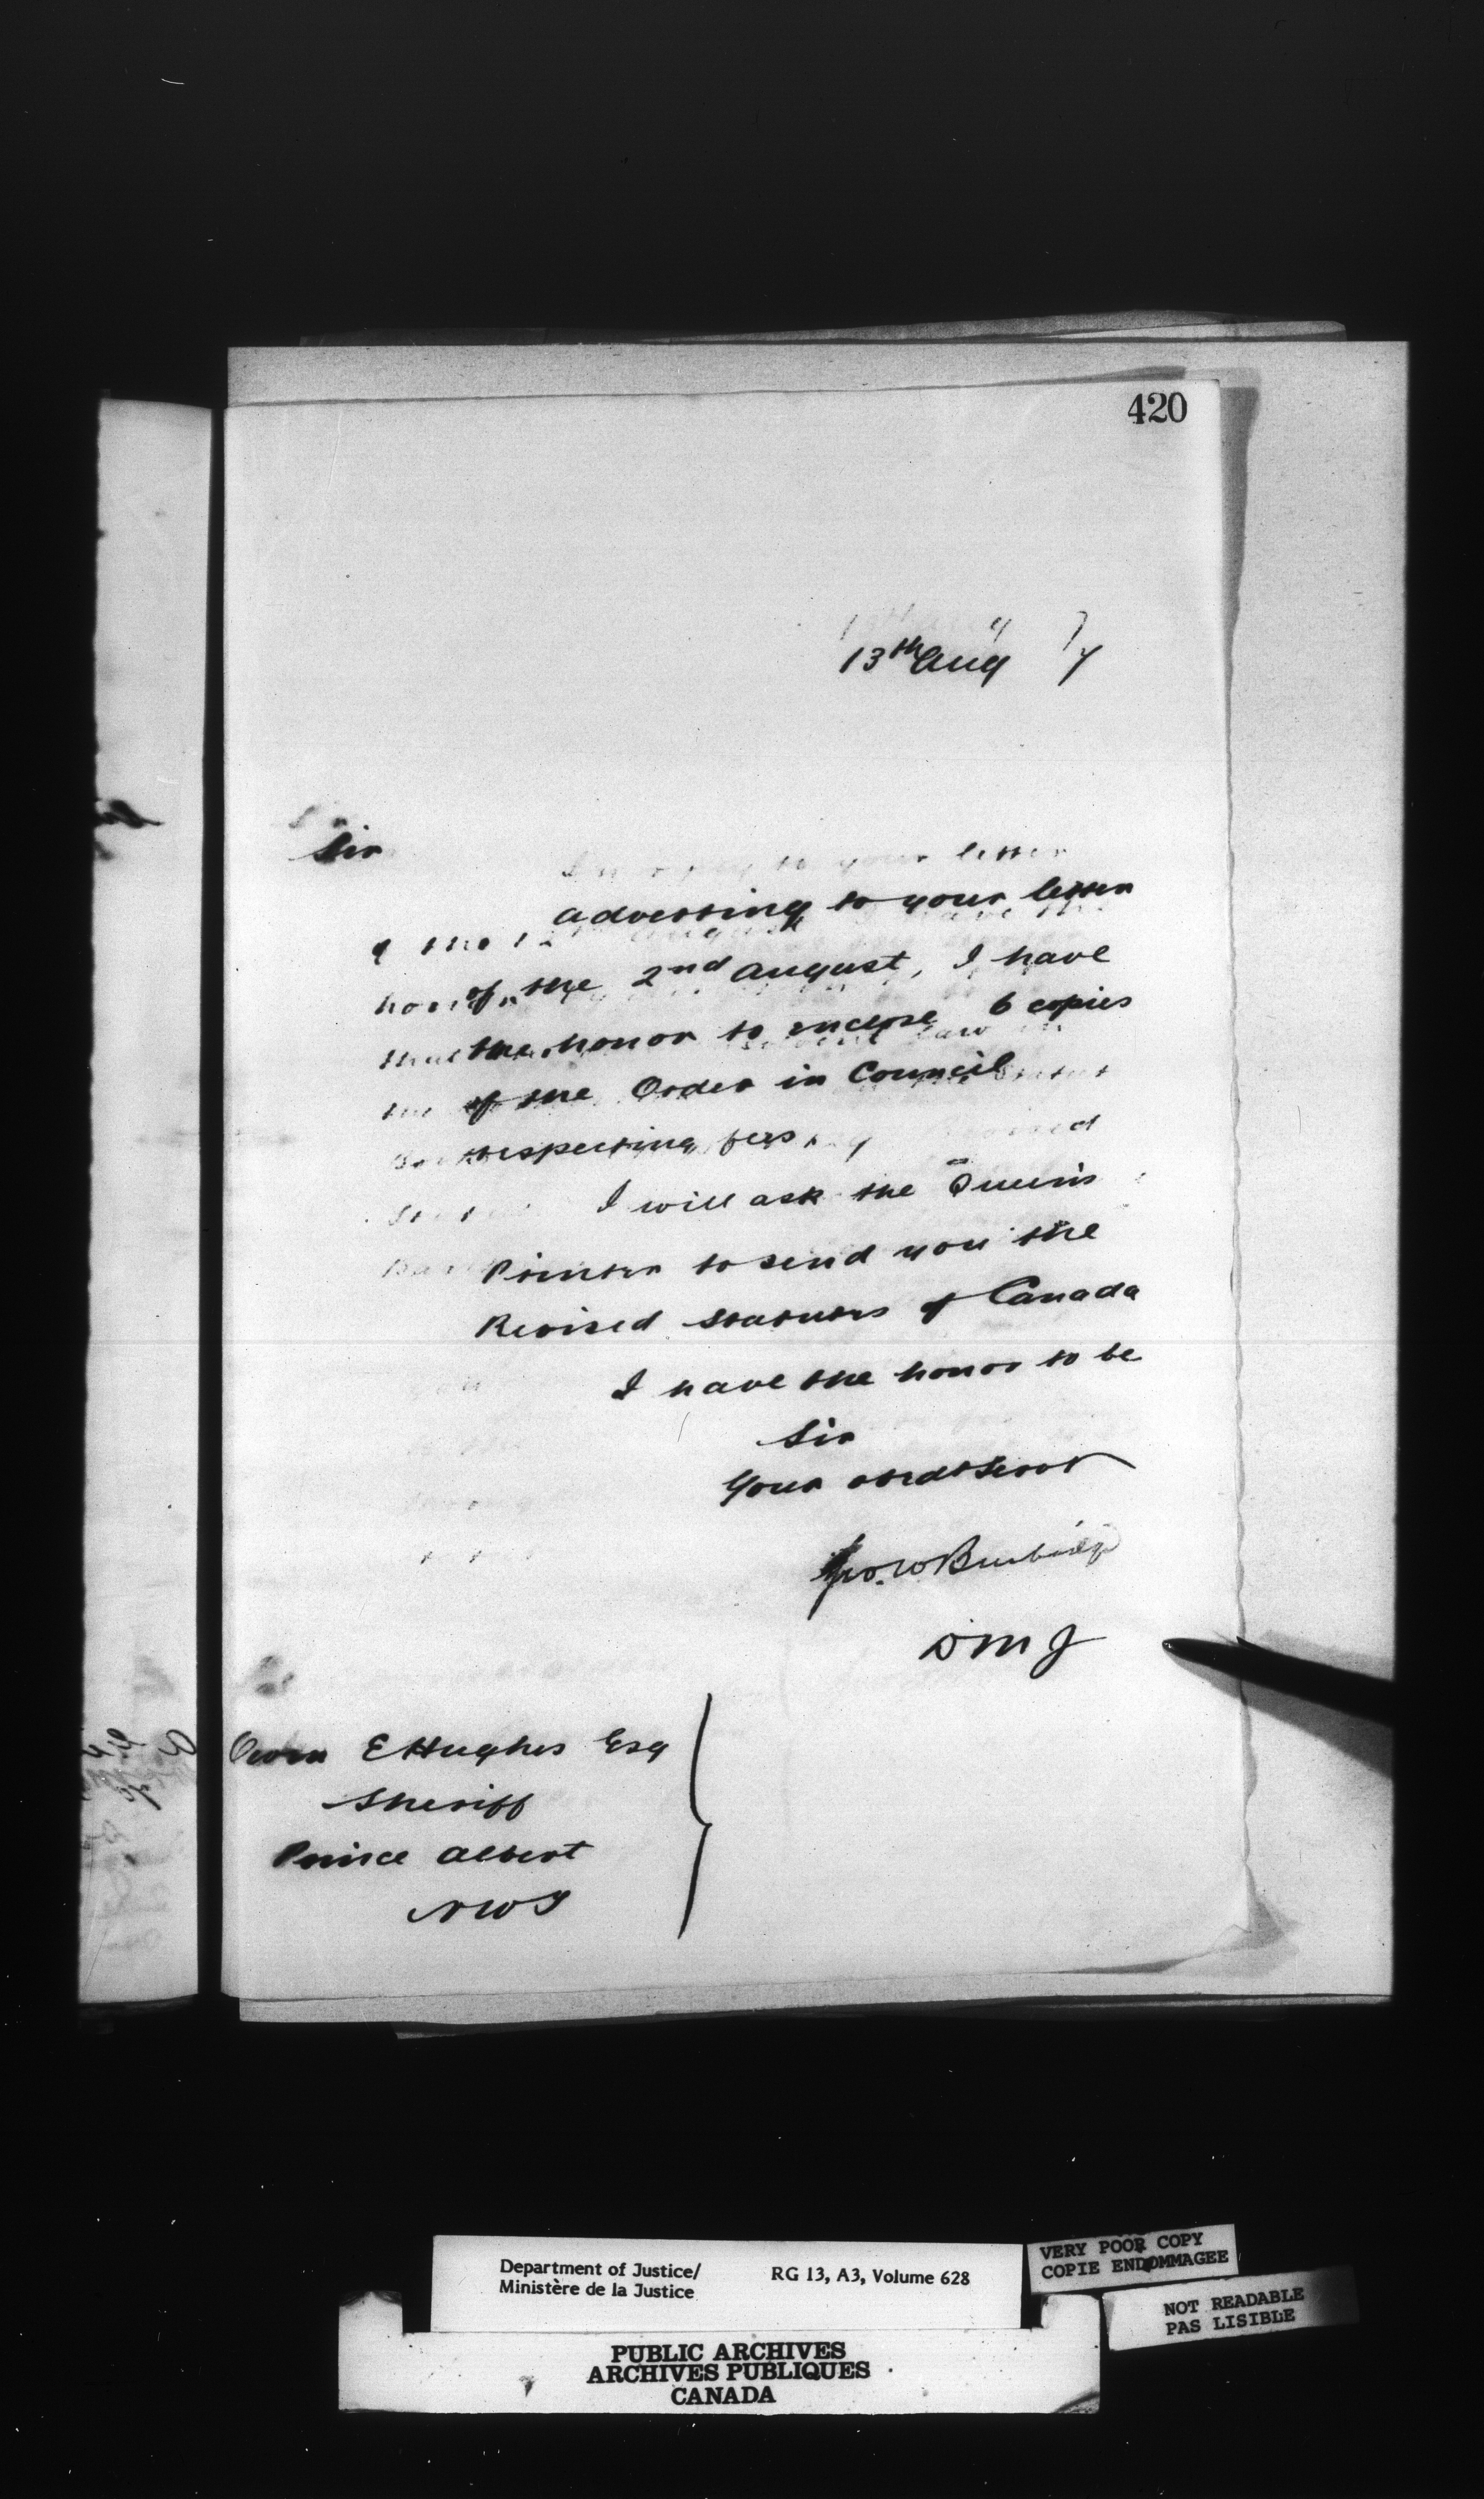 420
13th Aug 7
Sir
Adverting to your letter
of the 2nd August, I have
the honor to enclose 6 copies
of the Order in Council
respecting fees,
I will ask the Queen's
Printer to send you the
Revised Statutes of Canada
I have the honor to be
Sir
Your obedt Servt
Geo. W Burbidge
DMJ
Owen E Hughes Esq
Sheriff
Prince Albert
NWT
Department of Justice/
Ministère de la Justice
RG 13, A3, Volume 628
VERY POOR COPY
COPIE ENDOMMAGEE
NOT READABLE
PAS LISIBLE
PUBLIC ARCHIVES
ARCHIVES PUBLIQUES
CANADA